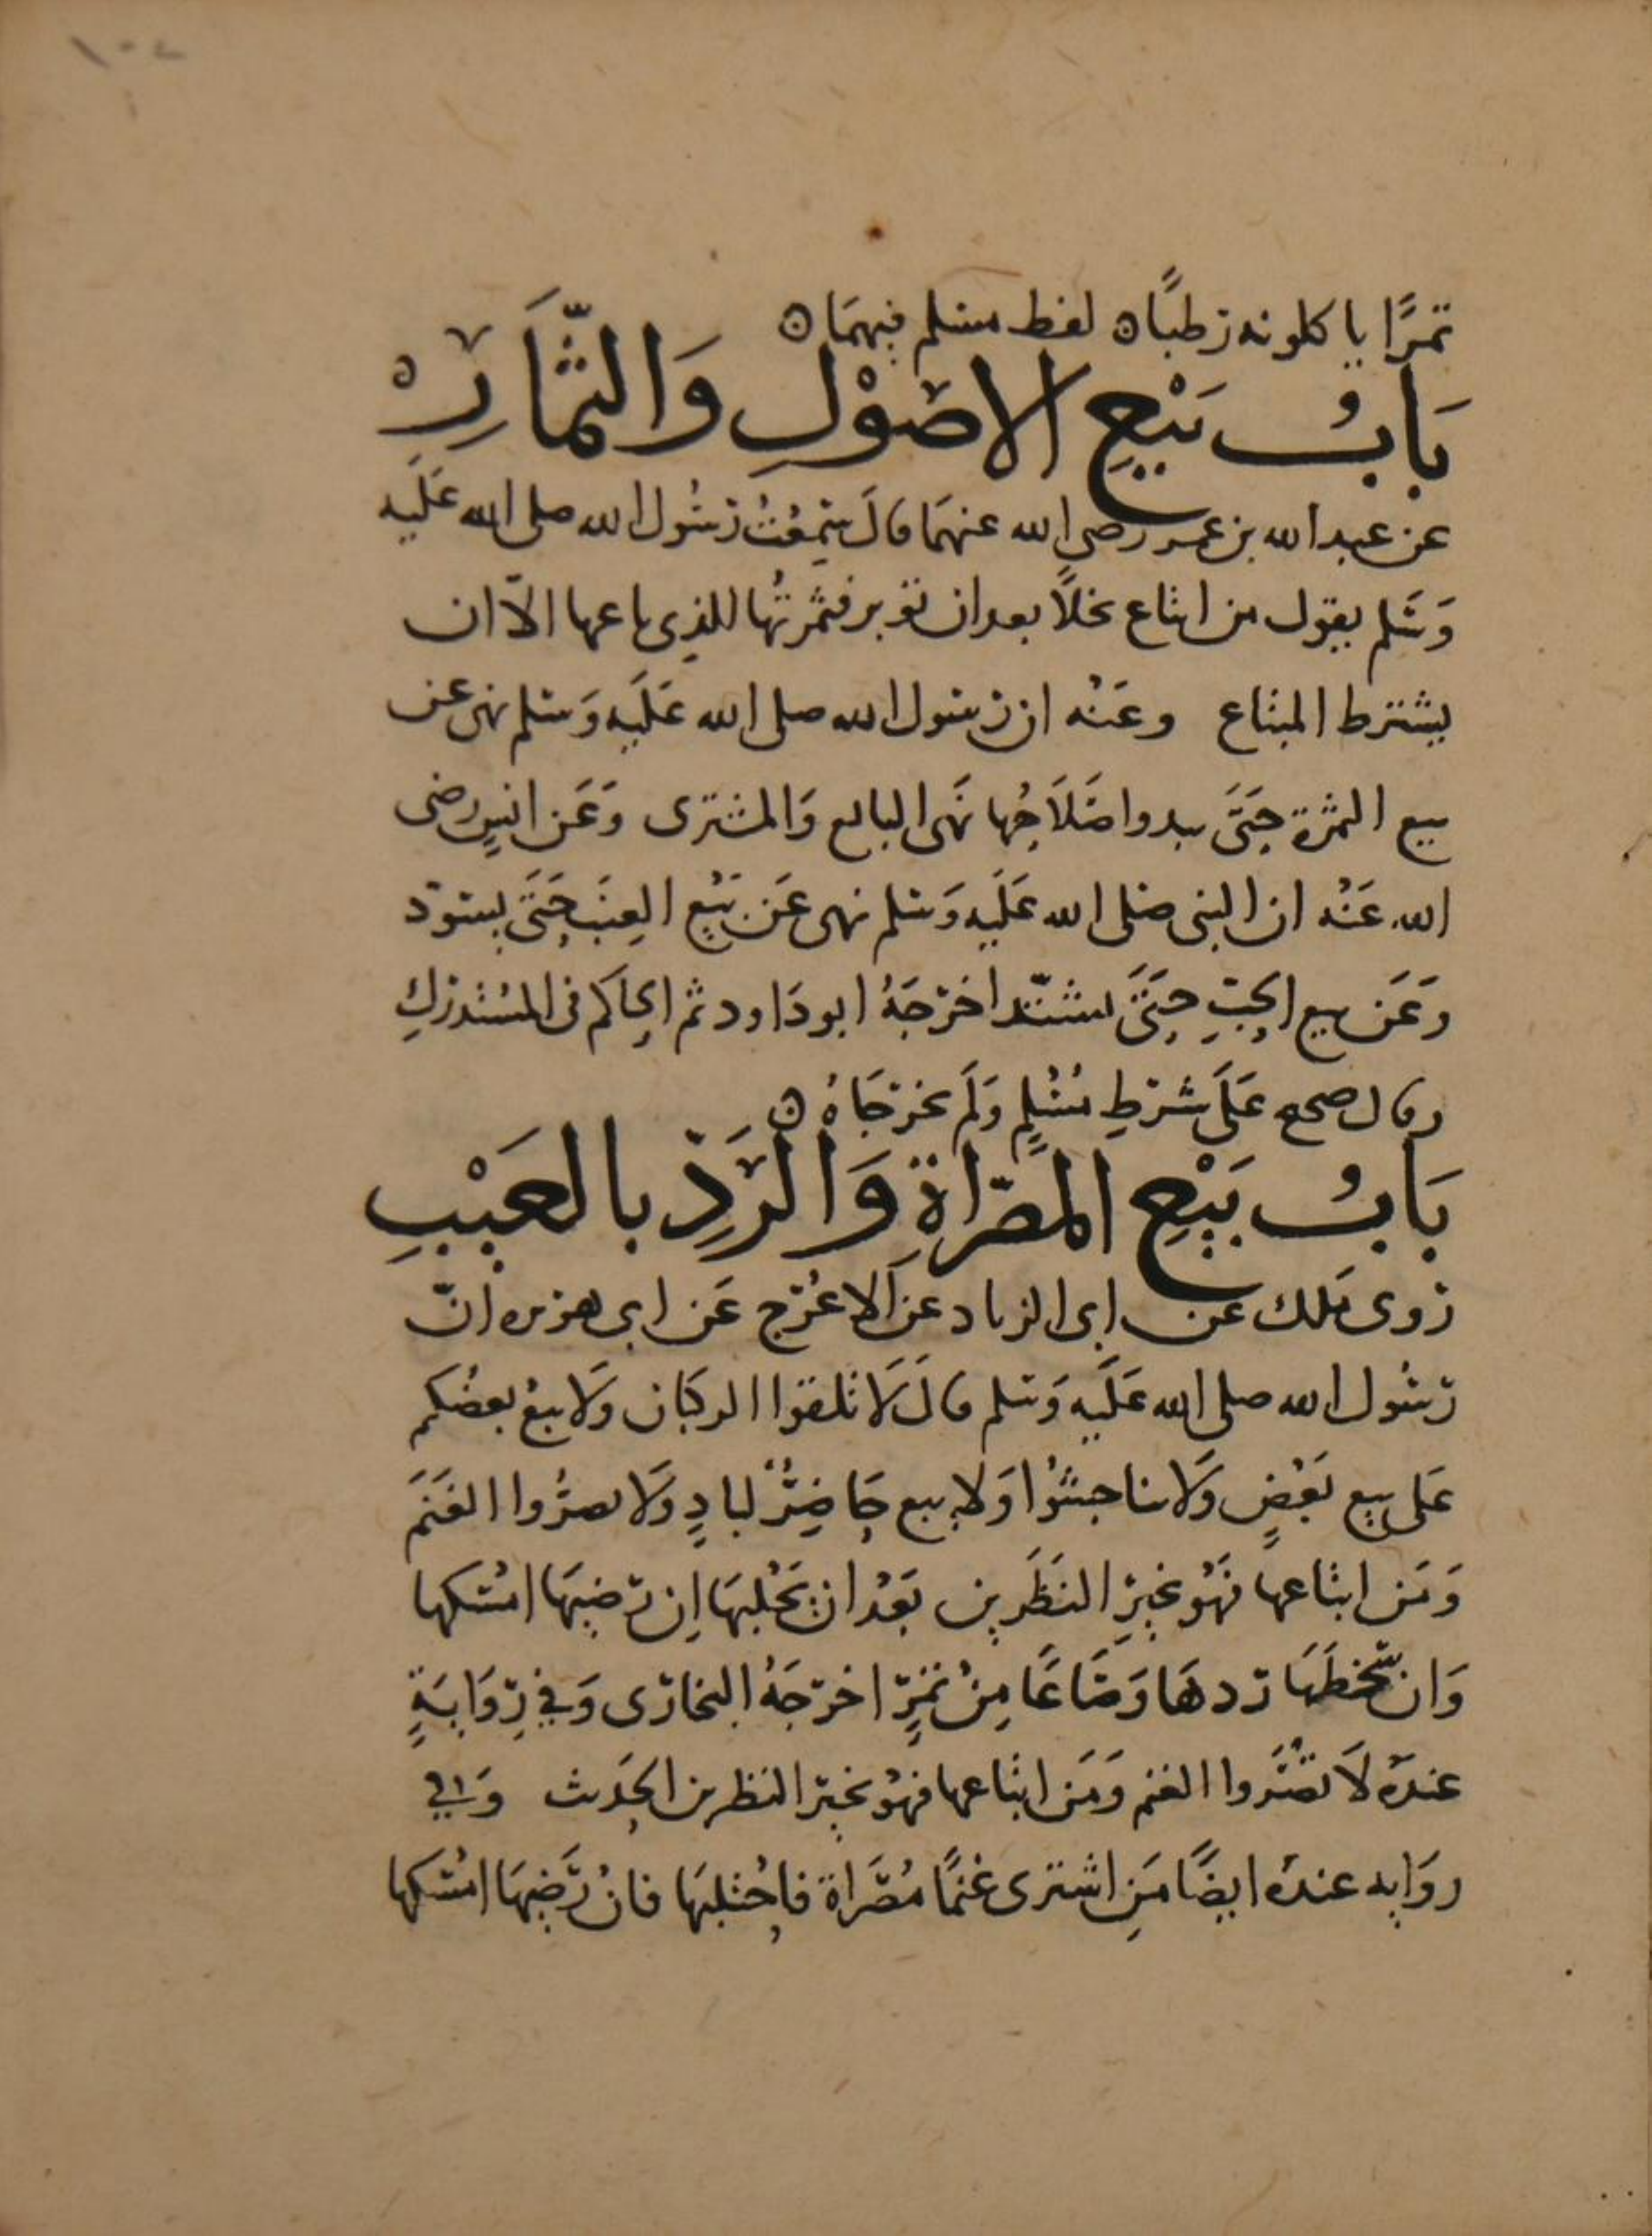 تمرًا ياكلونه رطبًا ه لفظ مسلم فيهمَا ه
بَابُ بَيْعِ الاصُوْلِ وَالثّمَارِ ه
عن عبد الله بن عمر رضي الله عنهمَا قالَ سَمِعْتُ رسُول الله صلى الله عَلَيه
وَسَلم يقول من ابتاع نخلاً بعد ان تؤبر فثمرتُها للذي باعها الاّ ان
يشترط المبتاع وعَنْه ان رسُول الله صلى الله عَلَيه وَسَلم نهى عن
بيع الثمرة حَتىَّ يبدوا صَلاَحُها نَهى البايع وَالمشترى وَعَن انسٍ رضى
الله عَنْه ان النبى صَلى الله عَلَيه وَسَلم نهى عَن بَيْعِ العِنَب حَتىَّ يسودّ
وَعَن بيع الحَبِّ حَتىَّ يشتدّ اخرَجَهُ ابو دَاود ثم الحَاكم فى المسْتدركِ
وقال صحيح عَلَى شرطِ مُسْلمٍ وَلَم يخرجَاهُ ه
بَابُ بَيْعِ المُصَرّاةِ وَالرَدِّ بالعَيْبِ
رَوى مَلك عن ابى الزناد عن الاعْرَج عَن ابى هريره انّ
رسُول الله صلى الله عَلَيه وَسَلم قالَ لاَ تلقوا الركبَان وَلا يبعْ بعضُكم
عَلى بيع بَعْضٍ وَلا تناجشُوْا وَلا يبيع حَاضِرٌ لبادٍ وَلا تصرُّوا الغَنَمَ
وَمَن ابتاعها فَهُو بخيرِ النَظَرين بَعْدَ ان يحْلبهَا اِن رَضيهَا امْسَكها
وَان سَخطَهَا ردهَا وَصَاعًا مِنْ تمرٍ اخرجَهُ البخارى وَفي رِوَايَةٍ
عندَهُ لاَ تصُرَّوا الغنم وَمَن ابتاعها فهُو بخير النظرين الحَديث وَفي
روَايه عندَه ايضًا مَنِ اشترى غنمًا مُصَرّاة فاحْتلبهَا فانْ رَضيهَا امْسَكها